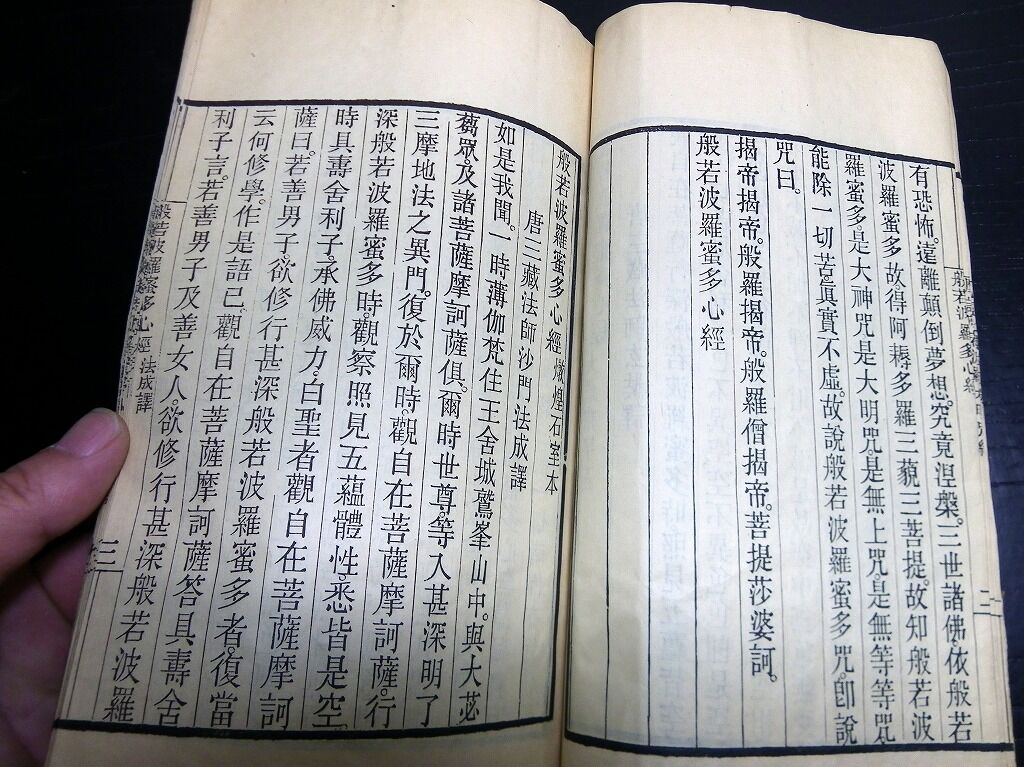 有恐怖。遠離顛倒夢想。究竟涅槃。三世諸佛。依般若
波羅蜜多故。得阿耨多羅三藐三菩提。故知般若波
羅蜜多。是大神咒。是大明咒。是無上咒。是無等等咒
能除一切苦。眞實不虛。故說般若波羅蜜多咒。卽說
咒曰。
揭帝揭帝。般羅揭帝。般羅僧揭帝。菩提莎婆訶。
般若波羅蜜多心經
般若波羅蜜多心經燉煌石室本
唐三藏法師沙門法成譯
如是我聞。一時薄伽梵住王舍城鷲峯山中。與大苾
蒭眾。及諸菩薩摩訶薩俱。爾時世尊。等入甚深明了
三摩地法之異門。復於爾時。觀自在菩薩摩訶薩。行
深般若波羅蜜多時。觀察照見五蘊體性。悉皆是空
時具壽舍利子。承佛威力。白聖者觀自在菩薩摩訶
薩曰。若善男子。欲修行甚深般若波羅蜜多者。復當
云何修學。作是語已。觀自在菩薩摩訶薩答具壽舍
利子言。若善男子及善女人。欲修行甚深般若波羅
般若波羅蜜多心經 法成譯
三